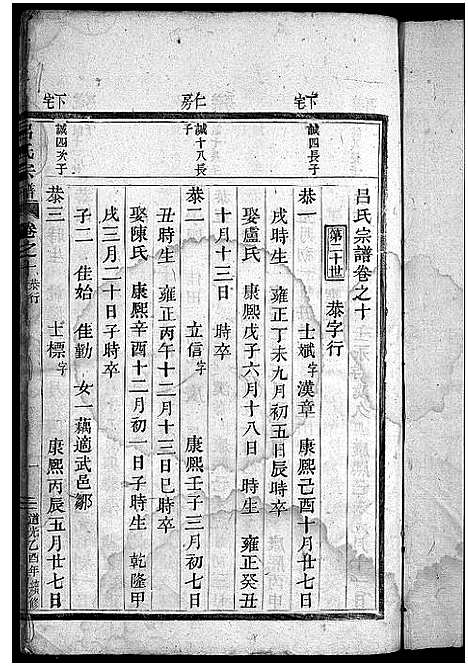 呂氏宗譜卷之十
第二十世　恭字行
下宅
誠四長子
恭一　士斌字漢章　康熙己酉十月廿七日
戌時生　雍正丁未九月初五日辰時卒
娶盧氏　康熙戊子六月十八日　時生　雍正癸丑
十月十三日　時卒
仁房
誠十八長子
恭二　立信字　康熙壬子三月初七日
丑時生　雍正丙午十二月十三日巳時卒
娶陳氏　康熙辛酉十二月初一日子時生　乾隆甲
戌三月二十日子時卒
子二　佳始　佳勤　女一藕適武邑鄒
下宅
誠四次子
恭三　士標字　康熙丙辰五月廿七日
呂氏宗譜　卷之十　恭行　一　道光乙酉年續修